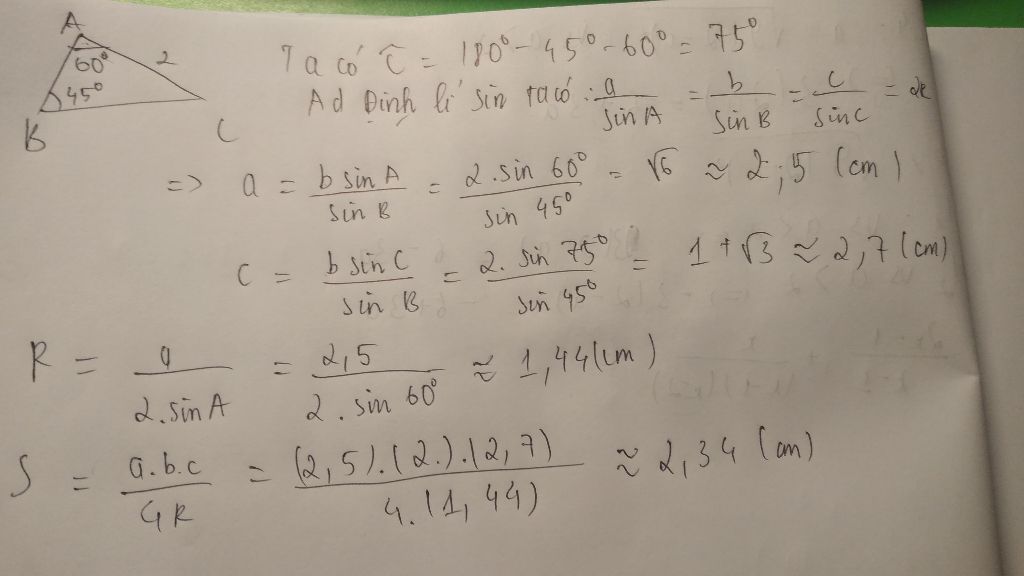 A
60° 2
45°
B C
Ta có Ĉ = 180° - 45° - 60° = 75°
Ad Định lí sin ta có: a/sin A = b/sin B = c/sin C = 2R
=> a = b sin A/sin B = 2.sin 60°/sin 45° = √6 ≈ 2,5 (cm)
c = b sin C/sin B = 2.sin 75°/sin 45° = 1 + √3 ≈ 2,7 (cm)
R = a/2.sin A = 2,5/2.sin 60° ≈ 1,44 (cm)
S = a.b.c/4R = (2,5).(2.).(2,7)/4.(1,44) ≈ 2,34 (cm)